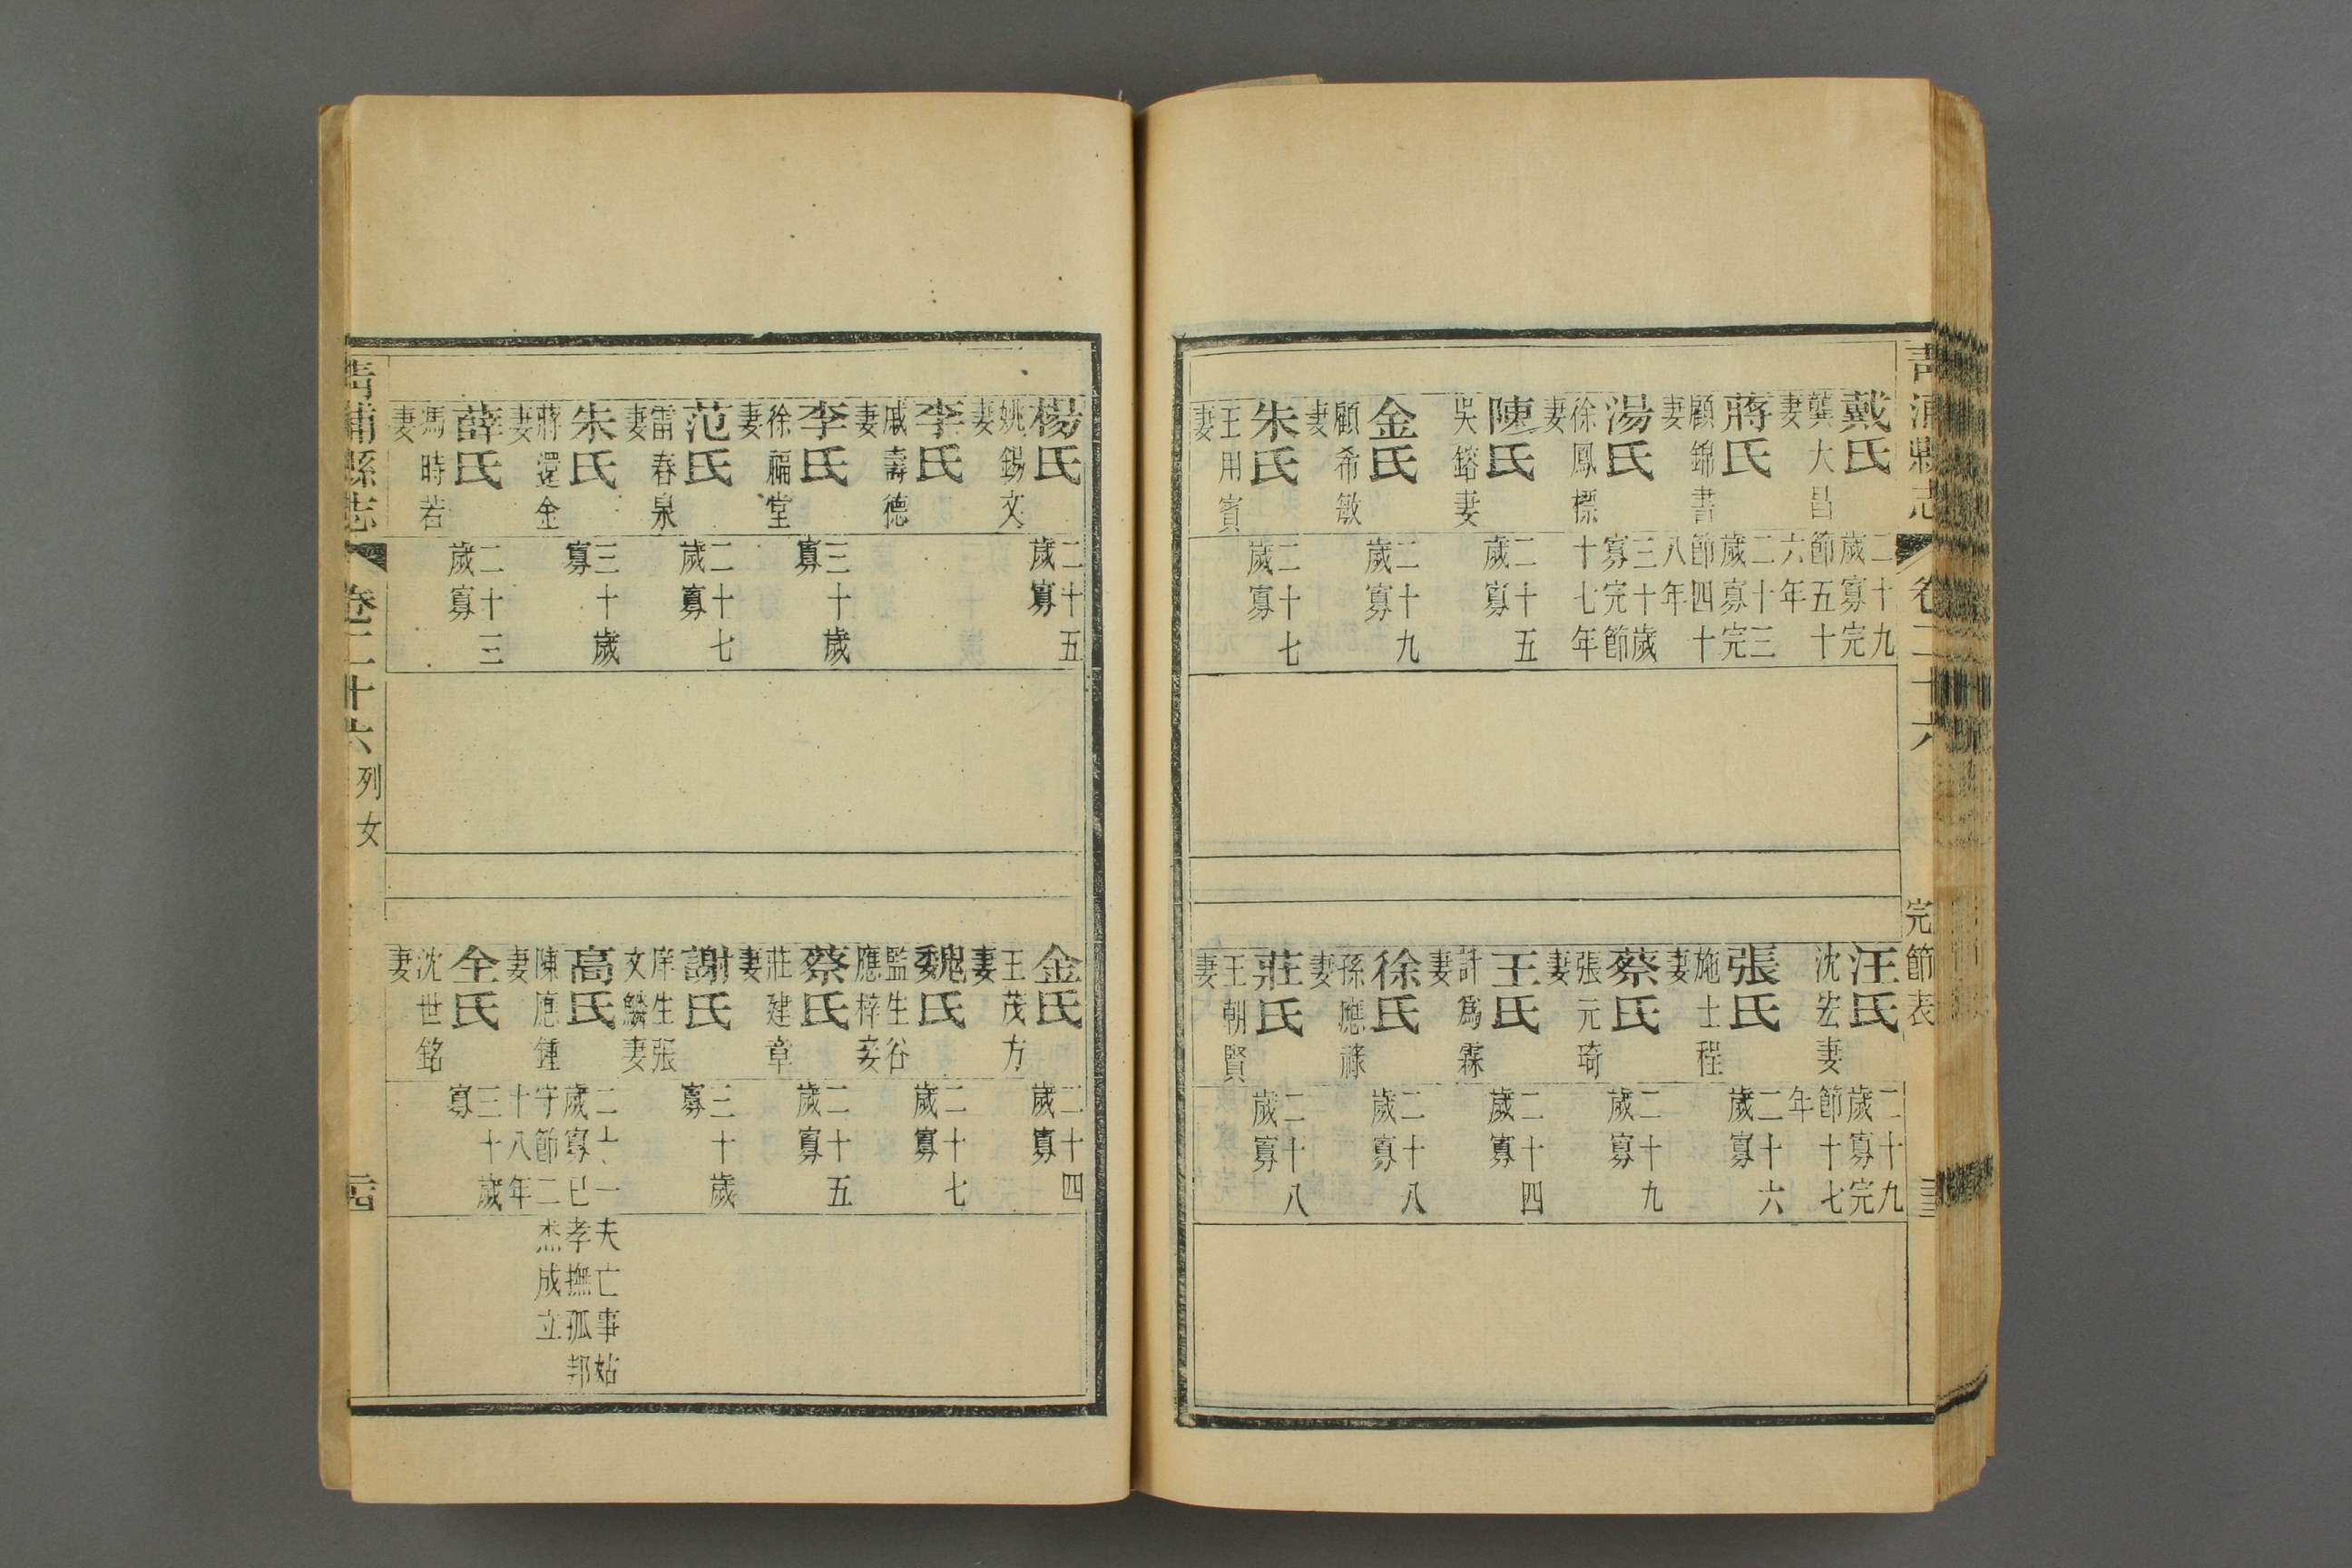 青浦縣志 卷二十六 完節表
戴氏 龔大昌妻 二十九歲寡完節五十六年
蔣氏 顧錦書妻 二十三歲寡完節四十八年
湯氏 徐鳳標妻 三十歲寡完節十七年
陳氏 吳鎔妻 二十五歲寡
金氏 顧希敏妻 二十九歲寡
朱氏 王用賓妻 二十七歲寡
汪氏 沈宏妻 二十九歲寡完節十七年
張氏 施士程妻 二十六歲寡
蔡氏 張元琦妻 二十九歲寡
王氏 計爲霖妻 二十四歲寡
徐氏 孫應祿妻 二十八歲寡
莊氏 王朝賢妻 二十八歲寡
楊氏 姚錫文妻 二十五歲寡
李氏 戚壽德妻
李氏 徐福堂妻 三十歲寡
范氏 雷春泉妻 二十七歲寡
朱氏 蔣還金妻 三十歲寡
薛氏 馮時若妻 二十三歲寡
金氏 王茂方妻 二十四歲寡
魏氏 監生谷應梓妾 二十七歲寡
蔡氏 莊建章妻 二十五歲寡
謝氏 庠生張文麟妻 三十歲寡
高氏 陳鍾妻 二十一歲寡已守節二十八年 夫亡事姑孝撫孤邦杰成立
全氏 沈世銘妻 三十歲寡
青浦縣志 卷二十六 列女